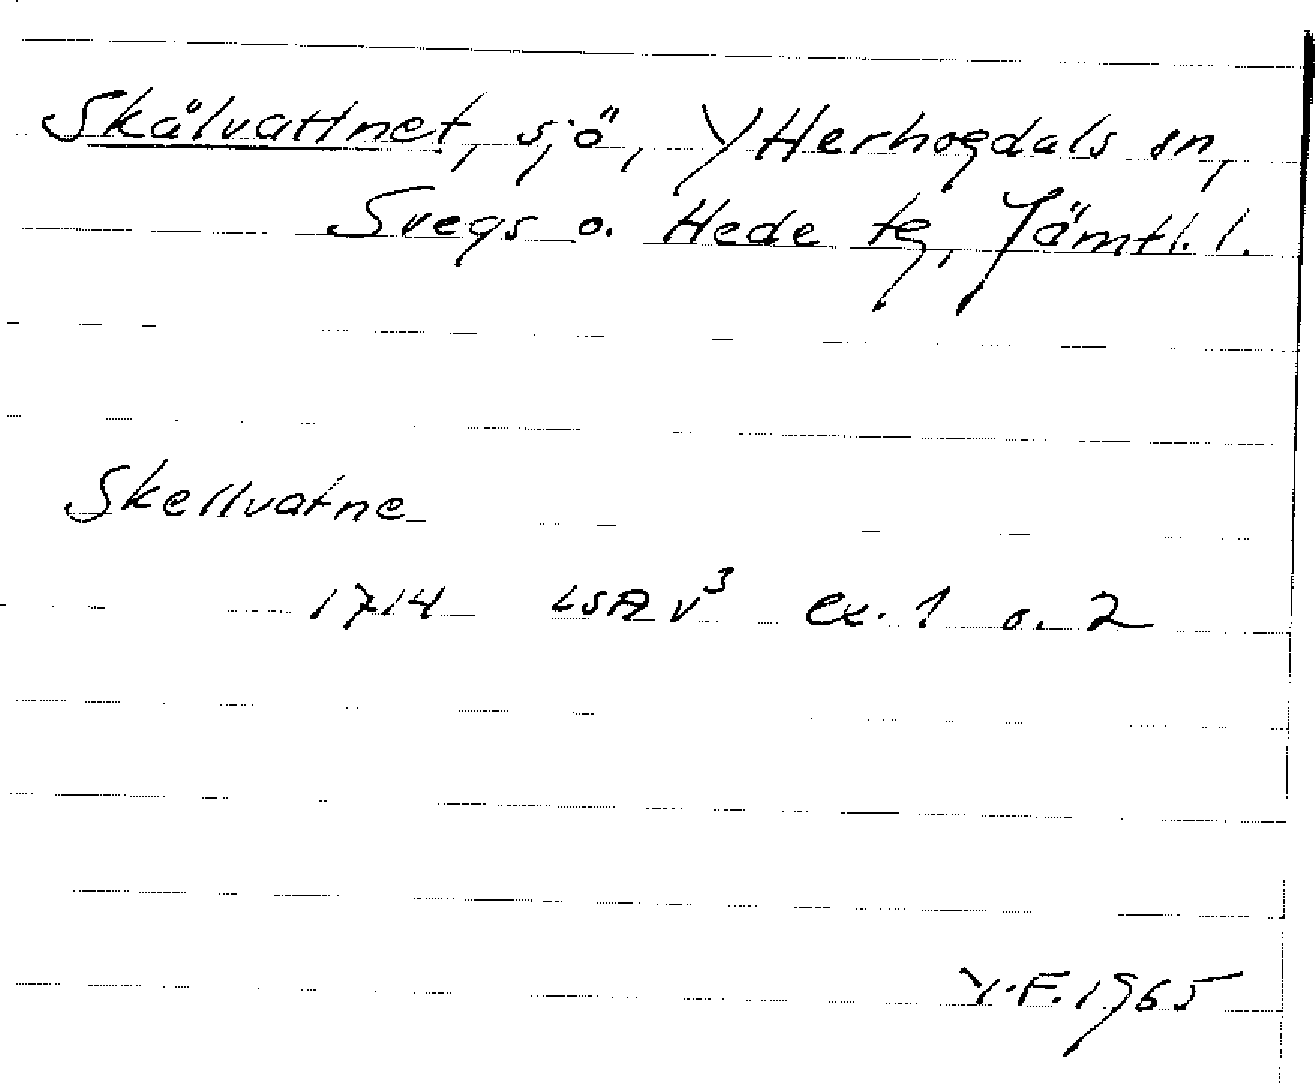 Skålvattnet, sjö, Ytterhogdals sn,
Svegs o. Hede tg, Jämtl. l.
Skellvatne
1714 LSA V³ ex. 1 o. 2
Y.F. 1965